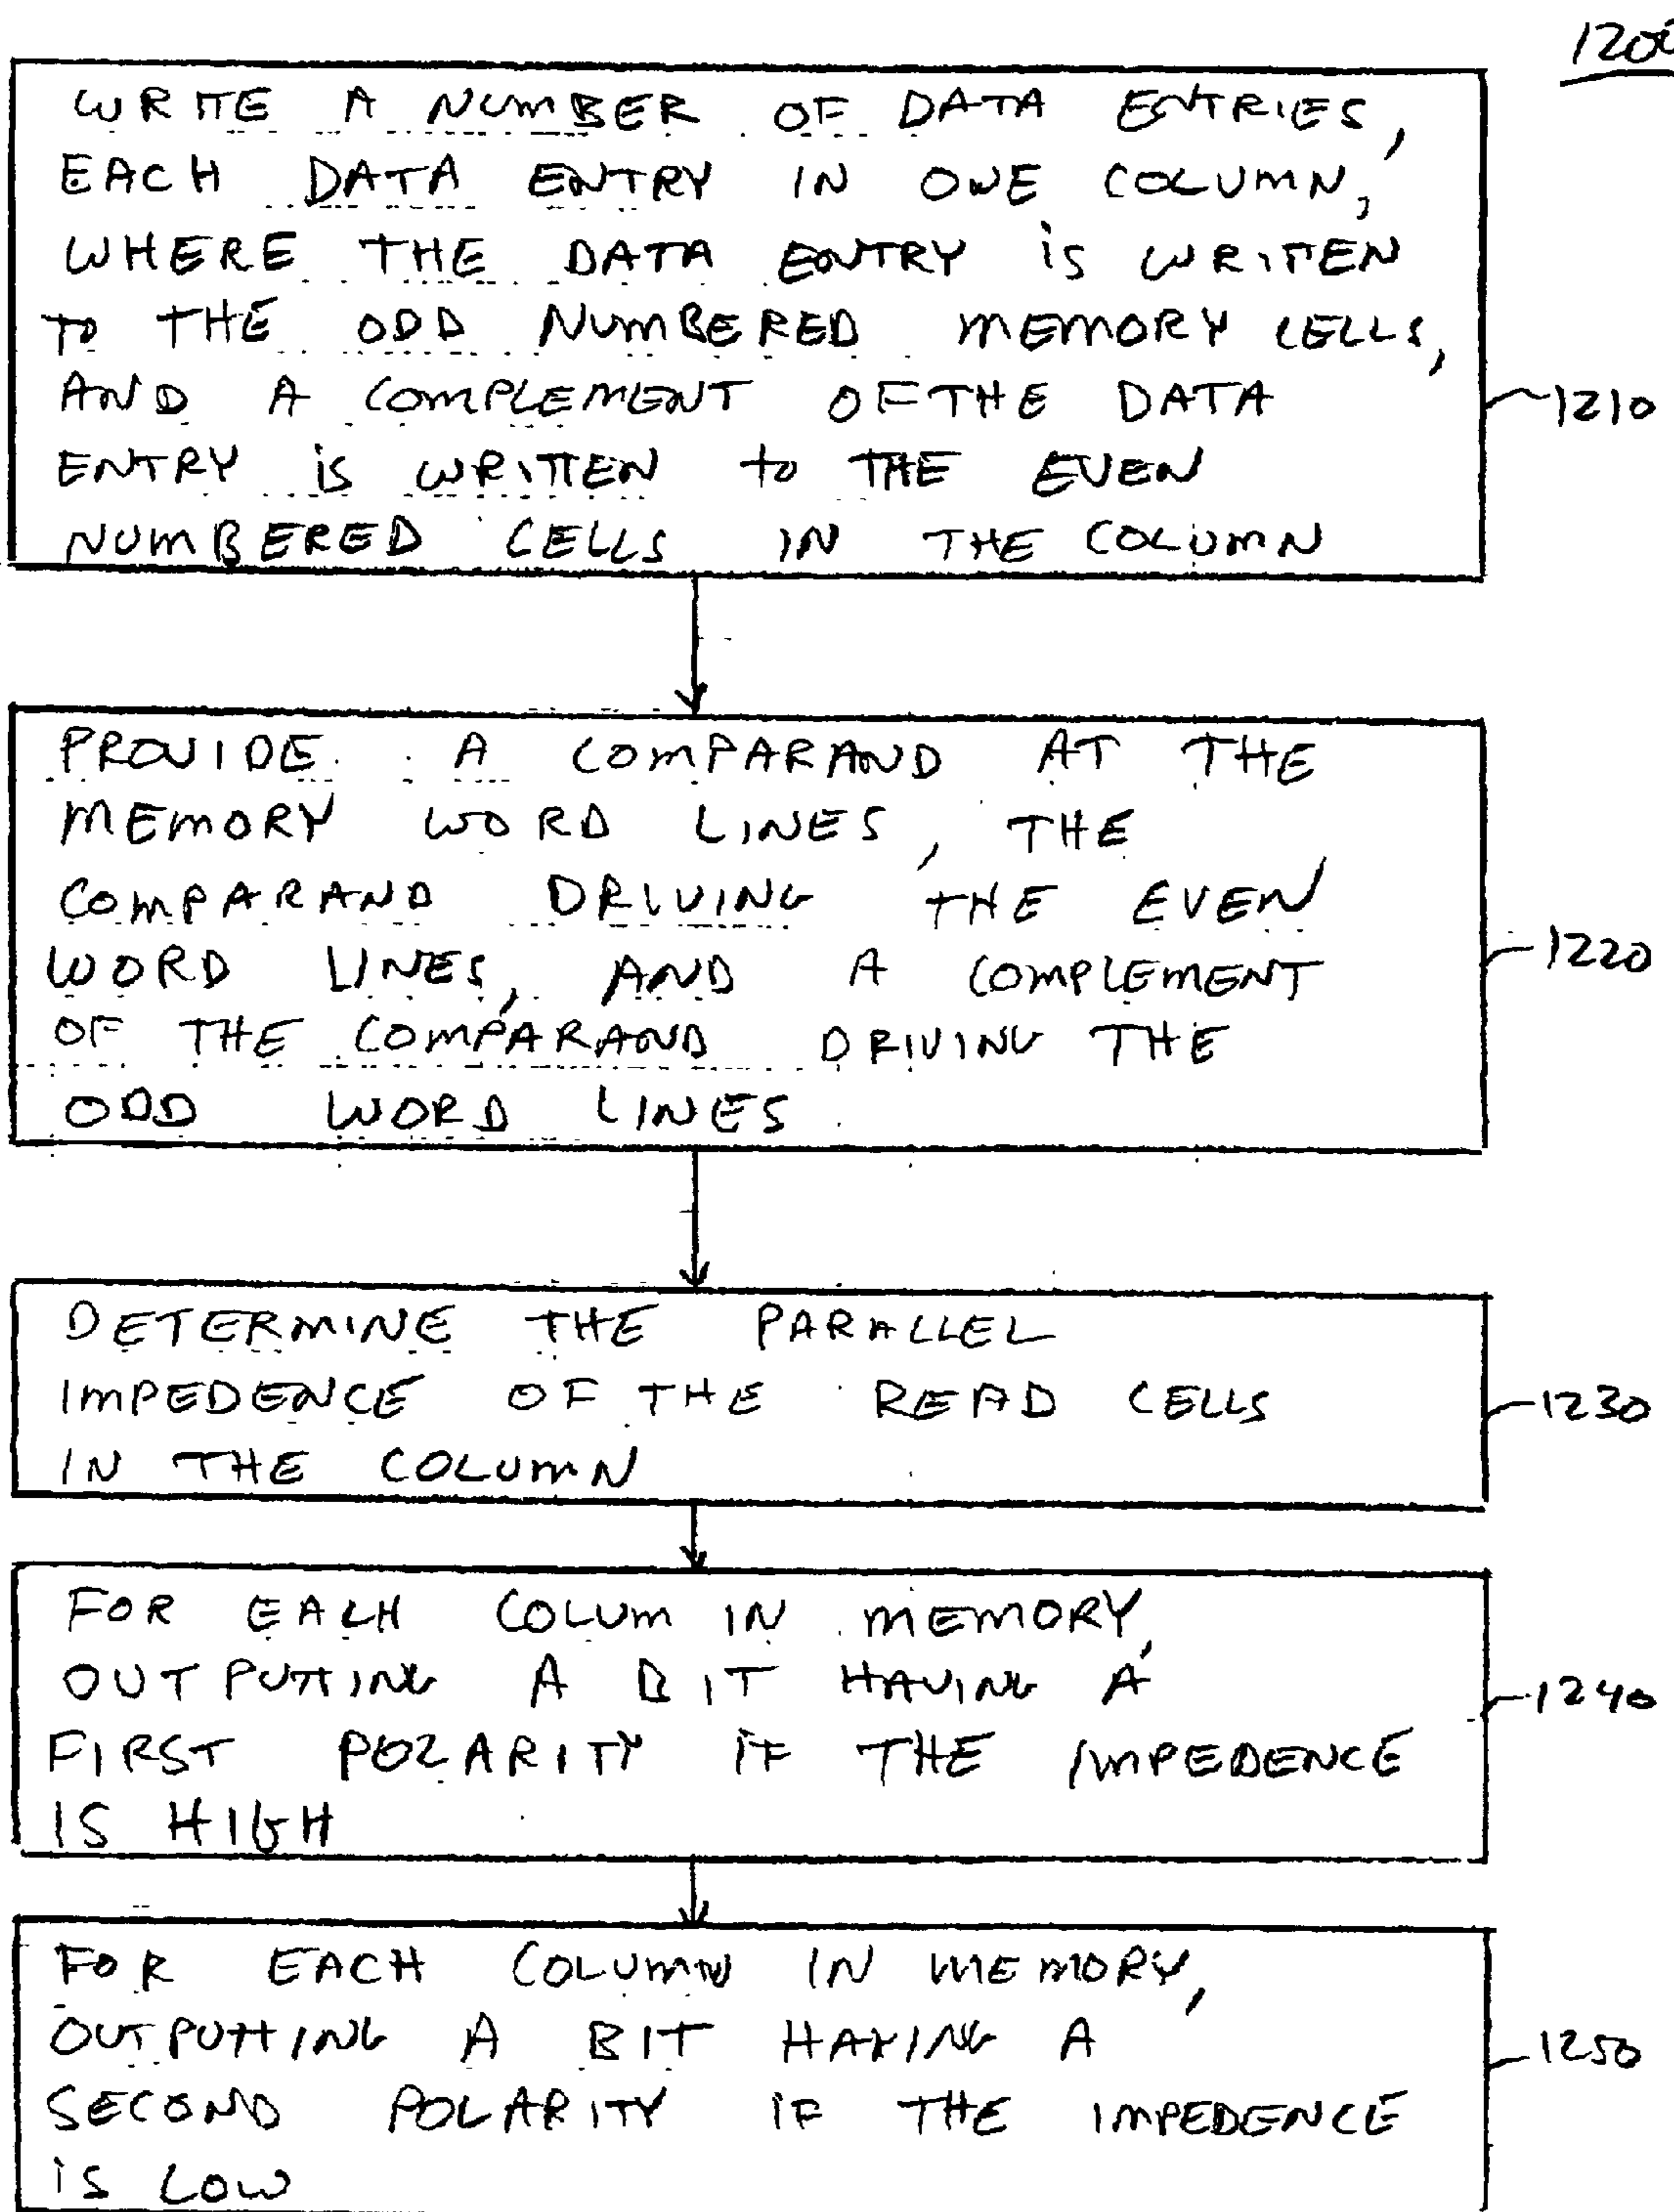 1200
WRITE A NUMBER OF DATA ENTRIES,
EACH DATA ENTRY IN ONE COLUMN,
WHERE THE DATA ENTRY is WRITTEN
TO THE ODD NUMBERED MEMORY CELLS,
AND A COMPLEMENT OF THE DATA
ENTRY is WRITTEN to THE EVEN
NUMBERED CELLS IN THE COLUMN
1210
PROVIDE A COMPARAND AT THE
MEMORY WORD LINES, THE
COMPARAND DRIVING THE EVEN
WORD LINES, AND A COMPLEMENT
OF THE COMPARAND DRIVING THE
ODD WORD LINES
1220
DETERMINE THE PARALLEL
IMPEDENCE OF THE READ CELLS
IN THE COLUMN
1230
FOR EACH COLUM IN MEMORY,
OUTPUTTING A BIT HAVING A
FIRST POLARITY IF THE IMPEDENCE
IS HIGH
1240
FOR EACH COLUMN IN MEMORY,
OUTPUTTING A BIT HAVING A
SECOND POLARITY IF THE IMPEDENCE
is LOW
1250